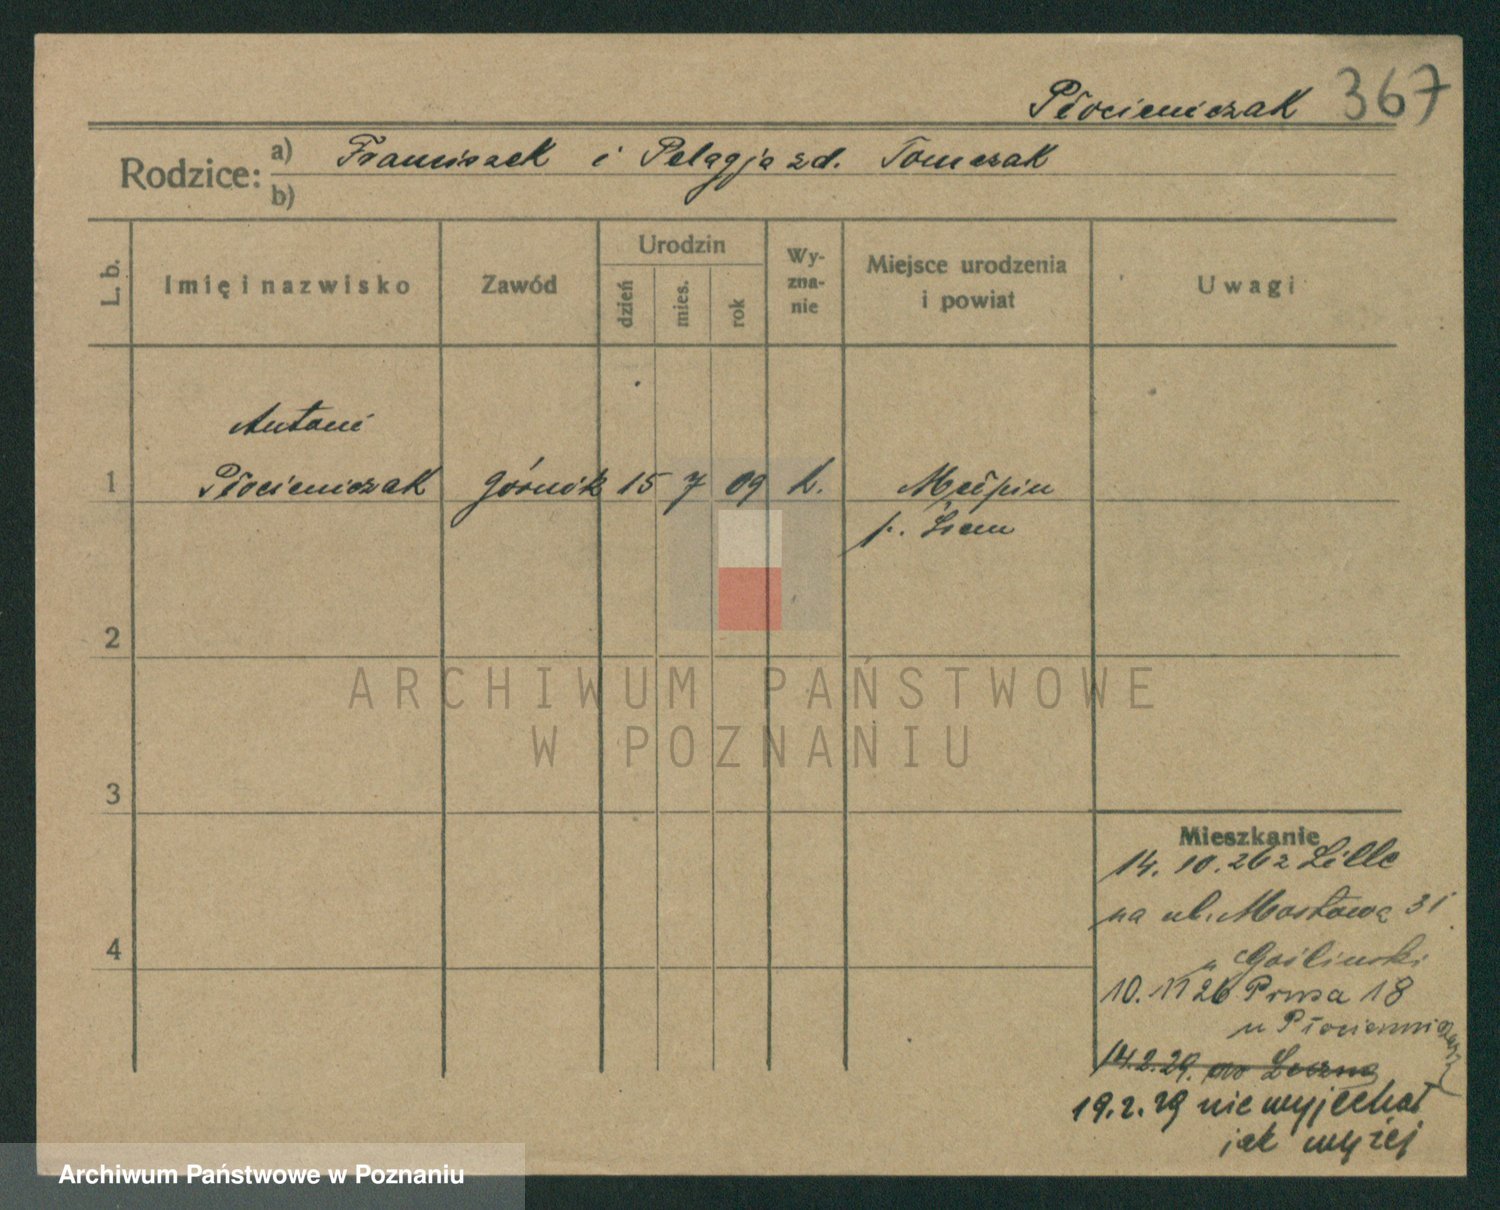 Płocieniczak 367
Rodzice: a) Franciszek i Pelagja zd. Tomczak
b)
L. b.
Imię i nazwisko
Zawód
Urodzin
dzień
mies.
rok
Wy-
zna-
nie
Miejsce urodzenia
i powiat
Uwagi
Antoni
1 Płocieniczak górnik 15 7 09 k. Mełpin
p. Śrem
2
3
4
Mieszkanie
14.10.26 z Lille
na ul. Mostową 31
u Gośliński
10. 11 26 Prusa 18
u Płocienni
14.2.29. do
19.2.29 nie wyjechał
jak wyżej
ARCHIWUM PAŃSTWOWE
W POZNANIU
Archiwum Państwowe w Poznaniu